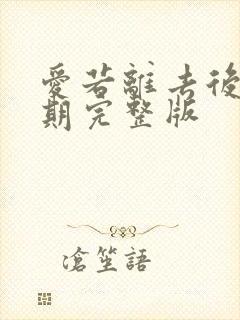 愛若離去後
期完整版
滄笙語